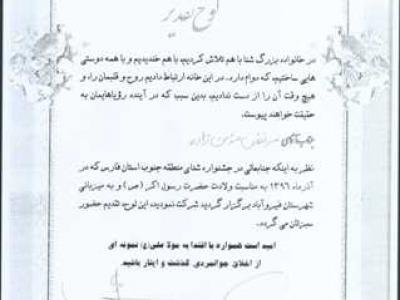 لوح تقدیر
در خانواده بزرگ شنا با هم تلاش کردیم، با هم خندیدیم و با همه دوستی
هایی ساختیم که دوام دارد. در این خانه ارتباط دادیم روح و قلبمان را، و
هیچ وقت آن را از دست ندادیم. بدین سبب که در آینده رؤیاهایمان به
حقیقت خواهند پیوست.
جناب آقای
نظر به اینکه جنابعالی در جشنواره شنای منطقه جنوب استان فارس که در
آذرماه ۱۳۹۶ به مناسبت ولادت حضرت رسول اکرم (ص) و به میزبانی
شهرستان فیروزآباد برگزار گردید شرکت نموديد، این لوح تقدیم حضور
می گردد.
امید است همواره با اقتدا به مولا علی(ع) نمونه ای
از اخلاق جوانمردی، گذشت و ایثار باشید.